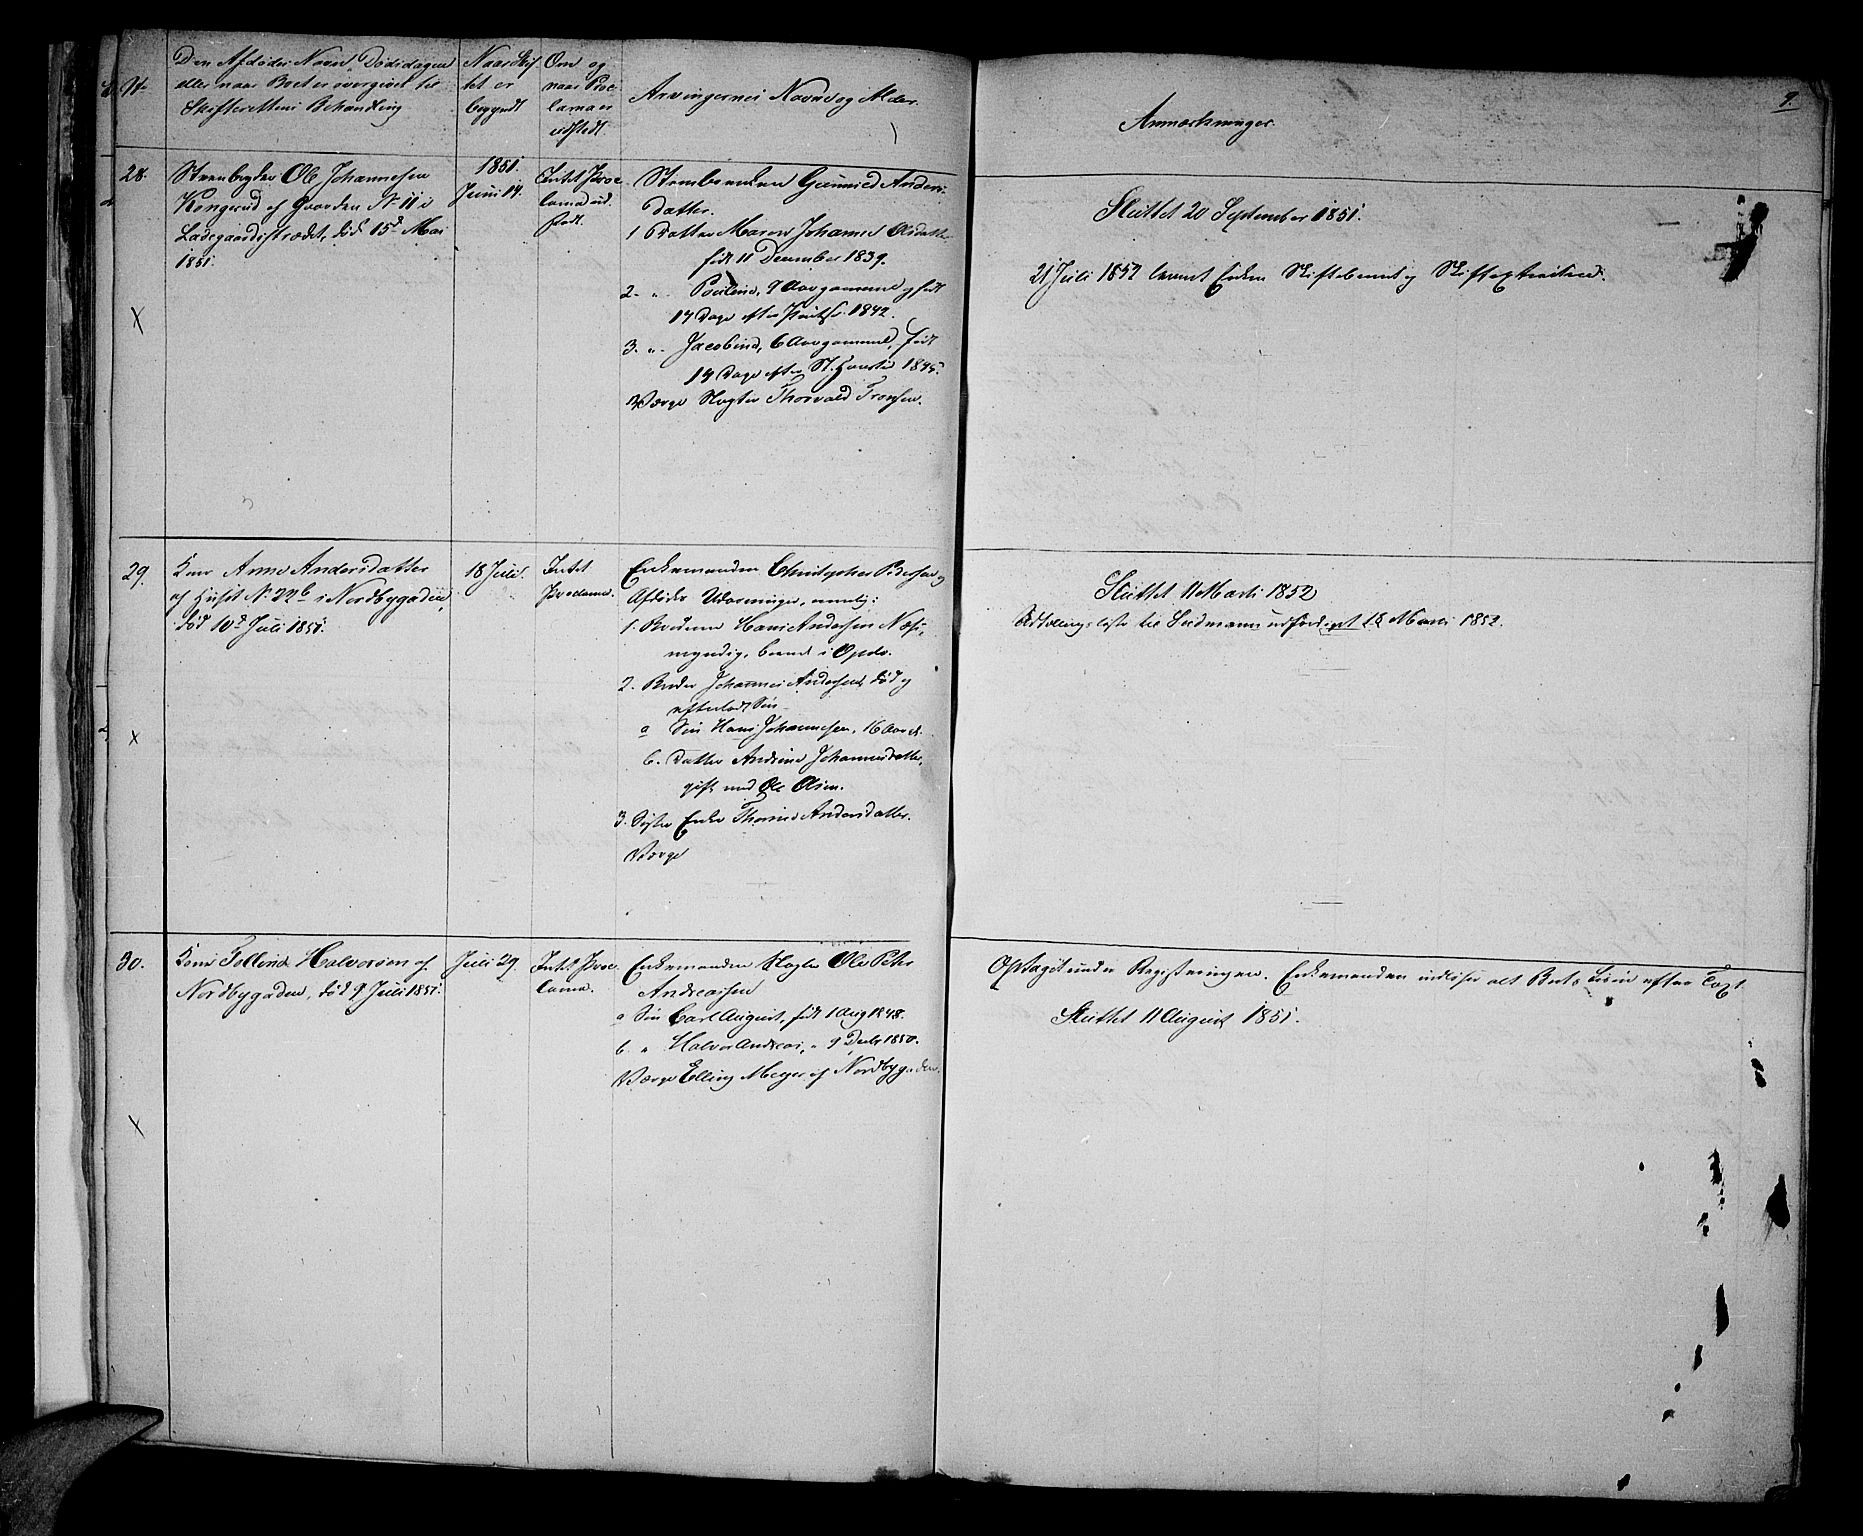 9.
No
Den Afdødes Navn, Dødsdagen
eller naar Boet er overgivet til
Skifterettens Behandling
Naar Skif
tet er
begyndt
Om og
naar Proc
lama er
udstedt.
Arvingernes Navne og Alder.
Anmærkninger.
28.
Steenbryder Ole Johannesen
Kongerud af Gaarden No 11 i
Ladegaardsstrædet, død 15d Mai
1851.
1851.
Juni 14.
Intet Proc
lama ud
stedt.
Steenbr. enken Gunnild Anders
datter.
1 Datter Maren Johanne Olsdatter
født 11 December 1839.
2. " Pouline, 9 Aar gammel og født
14 Dage efter 1842.
3. " Jacobine, 6 Aar gammel, født
14 Dage efter St. Hansti 1845.
Værge Slagter Thorvald Tronsen.
Sluttet 20 September 1851.
21 Juli 1852 levert Enken Skiftebrevet og Skifteextracten.
29.
Kone Anne Andersdatter
af Huset No 22b i Nordbygaden,
død 10d Juli 1851.
18 Juli.
Intet
Proclama.
Enkemanden Christopher Pedersen og
Afdødes Udarvinger, nemlig:
1. Broderen Hans Andersen Næs,
myndig, boende i Opdal.
2. Broder Johannes Andersen, død og
efterladt Søn
a Søn Hans Johannesen, 16 Aar.
b. Datter Andrine Johannesdatter,
gift med Ole Olsen.
3. Søster Enke Thorine Andersdatter.
Værge
Sluttet 11 Marts 1852
til Lensmann udfærdiget 18 Marts 1852.
30.
Kone Halvorsen af
Nordbygaden, død 9 Juli 1851.
Juli 29.
Intet Proc
lama.
Enkemanden Slagter Ole Peter
Andreassen
a Søn Carl August, født 1 Aug 1848.
b. " Halvor Andreas, " 9 Decbr 1850.
Værge Elling Meyer af Nordbygaden.
Optaget under Registreringen. Enkemanden indløser alt Boets Løsøre efter Taxt.
Sluttet 11 August 1851.